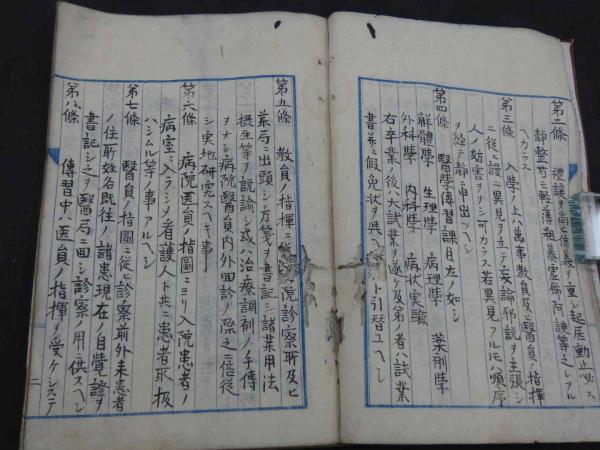 第二條 禮讓ヲ尚ヒ信義ヲ重シ起居動止必ス
静整苟ニモ輕薄麁暴虚誕等之レアル
ヘカラス
第三條 入學ノ上ハ萬事教員及ヒ醫員ノ指揮
ニ從ヒ謾ニ異見ヲ立テ妄論邪説ヲ主張シ
人ノ妨害ヲナシ可カラス若異見アルモハ順序
ヲ経テ静ニ申出ツヘシ
第四條 醫學傳習課目左ノ如シ
解體學 生理學 病理學 薬剤學
外科學 内科學 病状実識
右卒業ノ後ハ大試業ヲ遂ケ及第ノ者ハ試業
書并ニ假免状ヲ與ヘ 引替エヘシ
第五條 教員ノ指揮ニ 院診察所及ヒ
薬局ニ出頭シ方箋ヲ書記シ諸薬用法
摂生等ヲ説論シ或ハ治療調剤ノ手傳
ヲナシ病院醫員内外回診ノ際之ニ倍従
シ実地研究スヘキ事
第六條 病院医員ノ指圖ニヨリ入院患者ノ
病室ニ入ラシメ看護人ト共ニ患者取扱
ハシムル等ノ事アルヘシ
第七條 醫員ノ指圖ニ從ヒ診察前外来患者
ノ住所姓名既往ノ諸患現在ノ自覺證ヲ
書記シ之ヲ醫局ニ回シ診察ノ用ニ供スヘシ
第八條 傳習中ハ医員ノ指揮ヲ受ケシステ
二